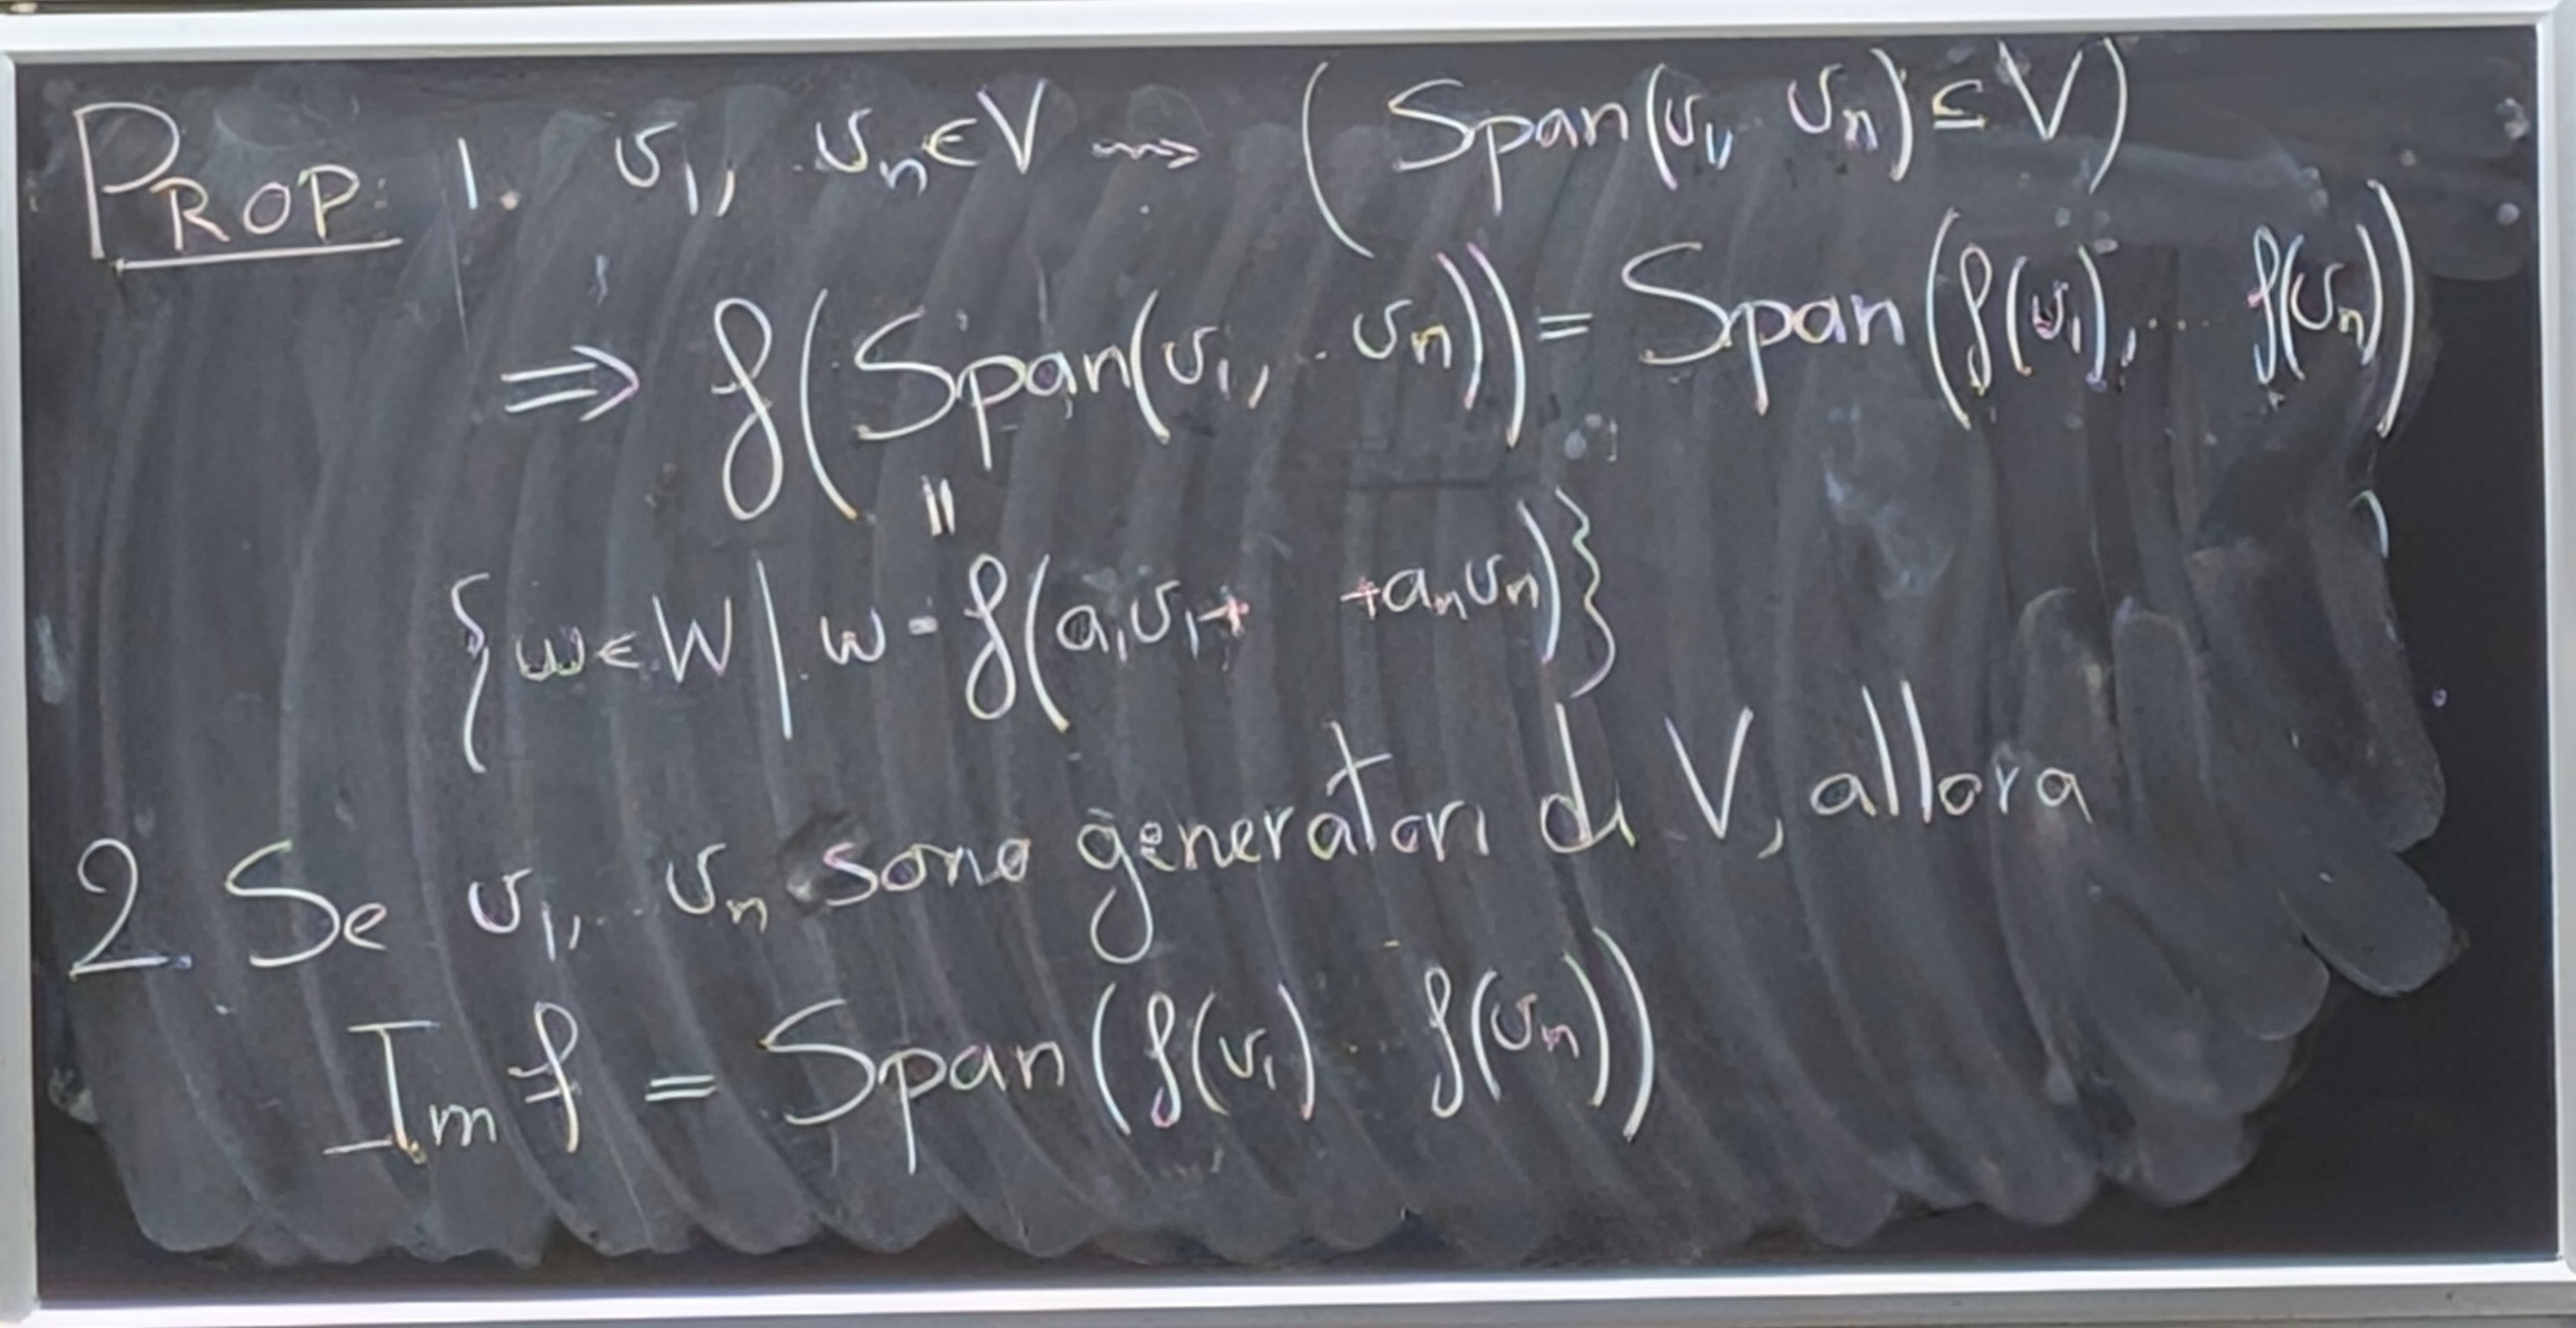 PROP: 1. v₁, .. vₙ∈V ⇝ (Span(v₁, .. vₙ) ⊆ V)
⇒ f(Span(v₁, .. vₙ)) = Span(f(v₁), ... f(vₙ))
=
{w∈W | w = f(a₁v₁+ +aₙvₙ)}
2. Se v₁, .. vₙ sono generatori di V, allora
Im f = Span(f(v₁) .. f(vₙ))